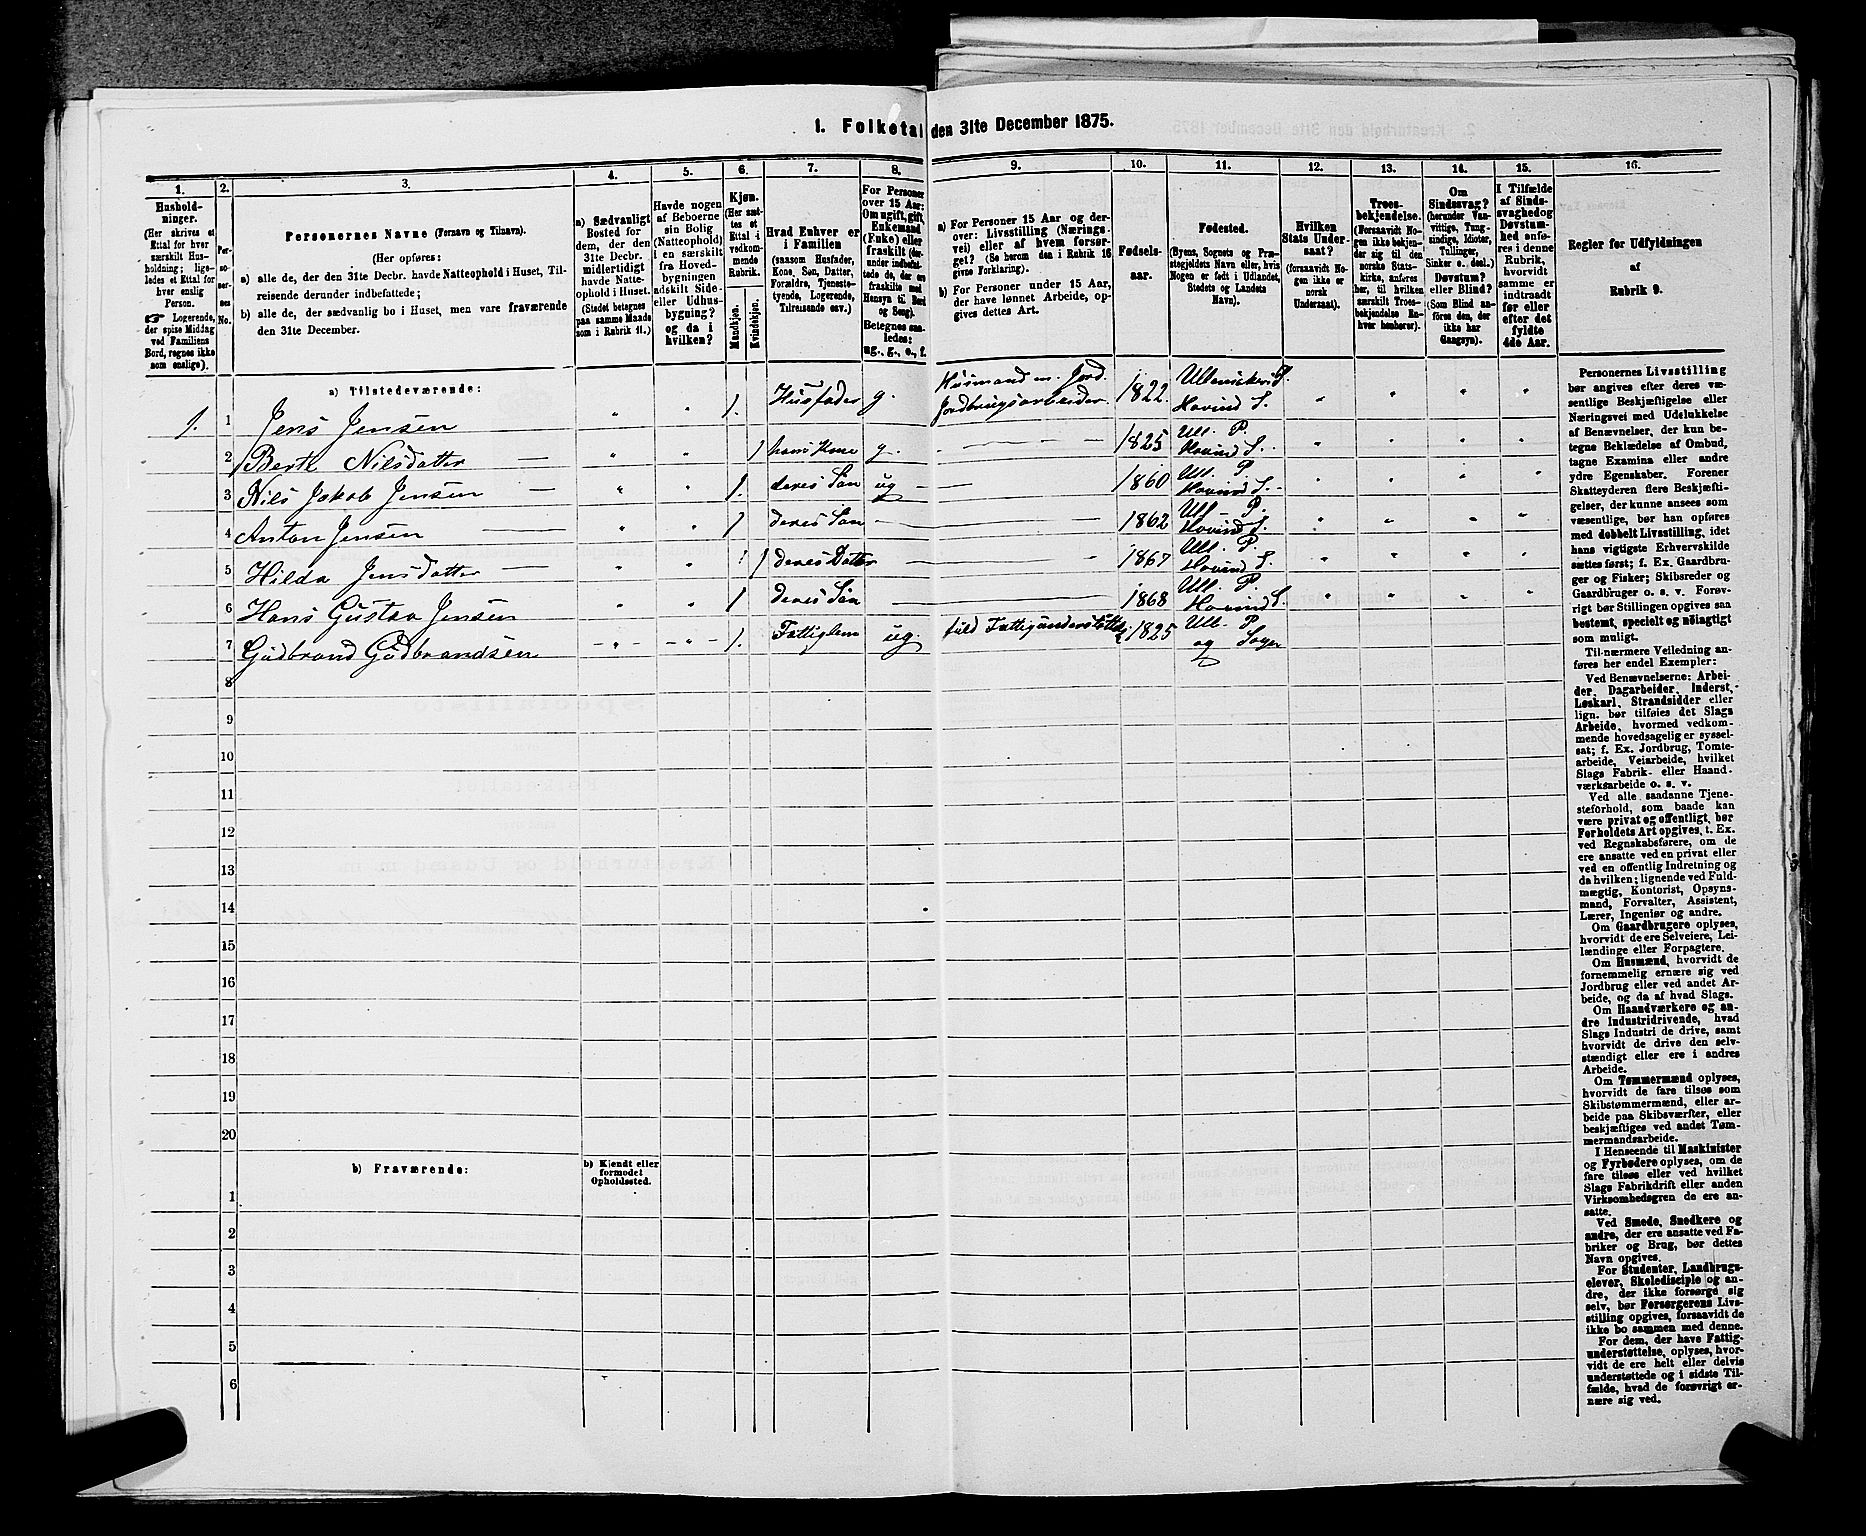 1. Folketal den 31te December 1875.
1.
Hushold-
ninger.
(Her skrives et
Ettal for hver
særskilt Hus-
holdning; lige-
ledes et Ettal for
hver enslig
Person.
☞ Logerende,
der spise Middag
ved Familiens
Bord, regnes ikke
som enslige).
2.
Per-
so-
ner-
nes
No.
3.
Personernes Navne (Fornavn og Tilnavn).
(Her opføres:
a) alle de, der den 31te Decbr. havde Natteophold i Huset, Til-
reisende derunder indbefattede;
b) alle de, der sædvanlig bo i Huset, men vare fraværende
den 31te December.
4.
a) Sædvanligt
Bosted for
dem, der den
31te Decbr.
midlertidigt
havde Natte-
ophold i Huset.
(Stedet betegnes
paa samme Maade
som i Rubrik 11.)
5.
Havde nogen
af Beboerne
sin Bolig
(Natteophold)
i en særskilt
fra Hoved-
bygningen
adskilt Side-
eller Udhus-
bygning?
og da i
hvilken?
6.
Kjøn.
(Her sæt-
tes et
Ettal i
vedkom-
mende
Rubrik.
Mandkjøn.
Kvindekjøn.
7.
Hvad Enhver er
i Familien
(saasom Husfader,
Kone, Søn, Datter,
Forældre, Tjeneste-
tyende, Logerende,
Tilreisende osv.)
8.
For Personer
over 15 Aar:
Om ugift, gift,
Enkemand
(Enke) eller
fraskilt (der-
under indbefat-
tede de, der ere
fraskilte med
Hensyn til Bord
og Seng).
Betegnes saa-
ledes:
ug., g., e., f.
9.
a) For Personer 15 Aar og der-
over: Livsstilling (Nærings-
vei) eller af hvem forsør-
get? (Se herom den i Rubrik 16
givne Forklaring).
b) For Personer under 15 Aar,
der have lønnet Arbeide, op-
gives dettes Art.
10.
Fødsels-
aar.
11.
Fødested.
(Byens, Sognets og Præ-
stegjeldets Navn eller, hvis
Nogen er født i Udlandet,
Stedets og Landets
Navn).
12.
Hvilken
Stats Under-
saat?
(foraavidt No-
gen ikke er
norsk
Undersaat).
13.
Troes-
bekjendelse.
(Forsaavidt No-
gen ikke bekjen-
der sig til den
norske Stats-
kirke, anføres
her, til hvilken
særskilt Troes-
bekjendelse En-
hver henhører).
14.
Om
Sindssvag?
(herunder Van-
vittige, Tung-
sindige, Idioter,
Tullinger,
Sinker o. desl.)
Døvstum?
eller Blind?
(Som Blind an-
føres den, der
ikke har
Gangsyn).
15.
I Tilfælde
af Sinds-
svaghed og
Døvstum-
hed anfø-
res i denne
Rubrik,
hvorvidt
samme er
indtraadt
før eller
efter det
fyldte
4de Aar.
16.
Regler for Udfyldningen
af
Rubrik 9.
a) Tilstedeværende:
1. 1 Jens Jensen " " 1. Husfader g. Husmand m. Jord. Jordbrugsarbeider 1822. Ullensaker P. Hovind S. " " " "
2 Berte Nilsdatter — " " 1 hans Kone g. — 1825 Ull. P. Hovind S. " " " "
3 Nils Jakob Jensen — " " 1. deres Søn ug — 1860 Ull. P. Hovind S. " " " "
4 Anton Jensen — " " 1 deres Søn — — 1862 Ull. P. Hovind S. " " " "
5 Hilda Jensdatter — " " 1 deres Datter — 1867 Ull. P. Hovind S. " " " "
6 Hans Gustav Jensen " " 1 deres Søn — 1868 Ull. P. Hovind S. " " " "
7 Gudbrand Gudbrandsen - " - - " - 1. Fattiglem ug. fuld Fattigunderstøttelse 1825 Ull. P. og Sogn
8
9
10
11
12
13
14
15
16
17
18
19
20
b) Fraværende:
b) Kjendt eller
formodet
Opholdssted.
1
2
3
4
5
6
Personernes Livsstilling
bør angives efter deres væ-
sentlige Beskjæftigelse eller
Næringsvei med Udelukkelse
af Benævnelser, der kun be-
tegne Beklædelse af Ombud,
tagne Examina eller andre
ydre Egenskaber. Forener
Skatteyderen flere Beskjæfti-
gelser, der kunne ansees som
væsentlige, bør han opføres
med dobbelt Livsstilling, idet
hans vigtigste Erhvervskilde
sættes først; f. Ex. Gaardbru-
ger og Fisker; Skibsreder og
Gaardbruger o. s. v. Forøv-
rigt bør Stillingen opgives saa
bestemt, specielt og nøiagtigt
som muligt.
Til nærmere Veiledning an-
føres her endel Exempler:
Ved Benævnelserne: Arbei-
der, Dagarbeider, Inderst,
Løskarl, Strandsidder eller
lign. bør tilføies det Slags
Arbeide, hvormed vedkom-
mende hovedsagelig er syssel-
sat; f. Ex. Jordbrug, Tomte-
arbeide, Veiarbeide, hvilket
Slags Fabrik- eller Haand-
værksarbeide o. s. v.
Ved alle saadanne Tjene-
steforhold, som baade kan
være privat og offentligt, bør
Forholdets Art opgives, t. Ex.
ved Regnskabsførere, om de
ere ansatte ved en privat eller
ved en offentlig Indretning og
da hvilken; lignende ved Fuld-
mægtig, Kontorist, Opsyns-
mand, Forvalter, Assistent,
Lærer, Ingeniør og andre.
Om Gaardbrugere oplyses,
hvorvidt de ere Selveiere, Lei-
lændinge eller Forpagtere.
Om Husmænd, hvorvidt de
fornemmelig ernære sig ved
Jordbrug eller ved andet Ar-
beide, og da af hvad Slags.
Om Haandværkere og an-
dre Industridrivende, hvad
Slags Industri de drive, samt
hvorvidt de drive den selv-
stændigt eller ere i andres
Arbeide.
Om Tømmermænd oplyses,
hvorvidt de fare tilsøs som
Skibstømmermænd, eller ar-
beide paa Skibsværfter, eller
beskjæftiges ved andet Tøm-
mermandsarbeide.
I Henseende til Maskinister
og Fyrbødere oplyses, om de
fare tilsøs eller ved hvilket
Slags Fabrikdrift eller anden
Virksomhedsgren de ere an-
satte.
Ved Smede, Snedkere og
andre, der ere ansatte ved Fa-
briker og Brug, bør dettes
Navn opgives.
For Studenter, Landbrugs-
elever, Skoledisciple og an-
dre, der ikke forsørge sig
selv, bør Forsørgerens Livs-
stilling opgives, forsaavidt de
ikke bo sammen med denne.
For dem, der have Fattig-
understøttelse, oplyses, hvor-
vidt de ere helt eller delvis
understøttede og i sidste Til-
fælde, hvad de forøvrigt er-
nære sig ved.